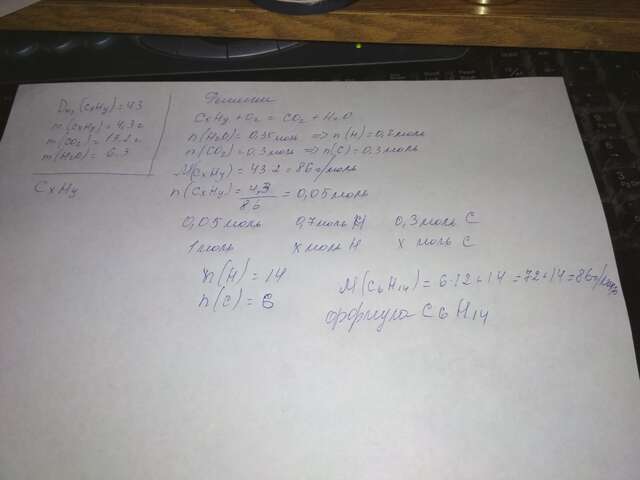 D H₂ (CxHy) = 43
m (CxHy) = 4,3 г
m (CO₂) = 13,2 г
m (H₂O) = 6.3
CxHy
Решение
CxHy + O₂ = CO₂ + H₂O
n(H₂O) = 0,35 моль => n(H) = 0,7 моль
n(CO₂) = 0,3 моль => n(C) = 0,3 моль
M(CxHy) = 43·2 = 86 г/моль
n(CxHy) = 4,3/86 = 0,05 моль
0,05 моль 0,7 моль H 0,3 моль C
1 моль x моль H x моль C
n(H) = 14
n(C) = 6
M(C₆H₁₄) = 6·12+14 = 72+14 = 86 г/моль
формула C₆H₁₄